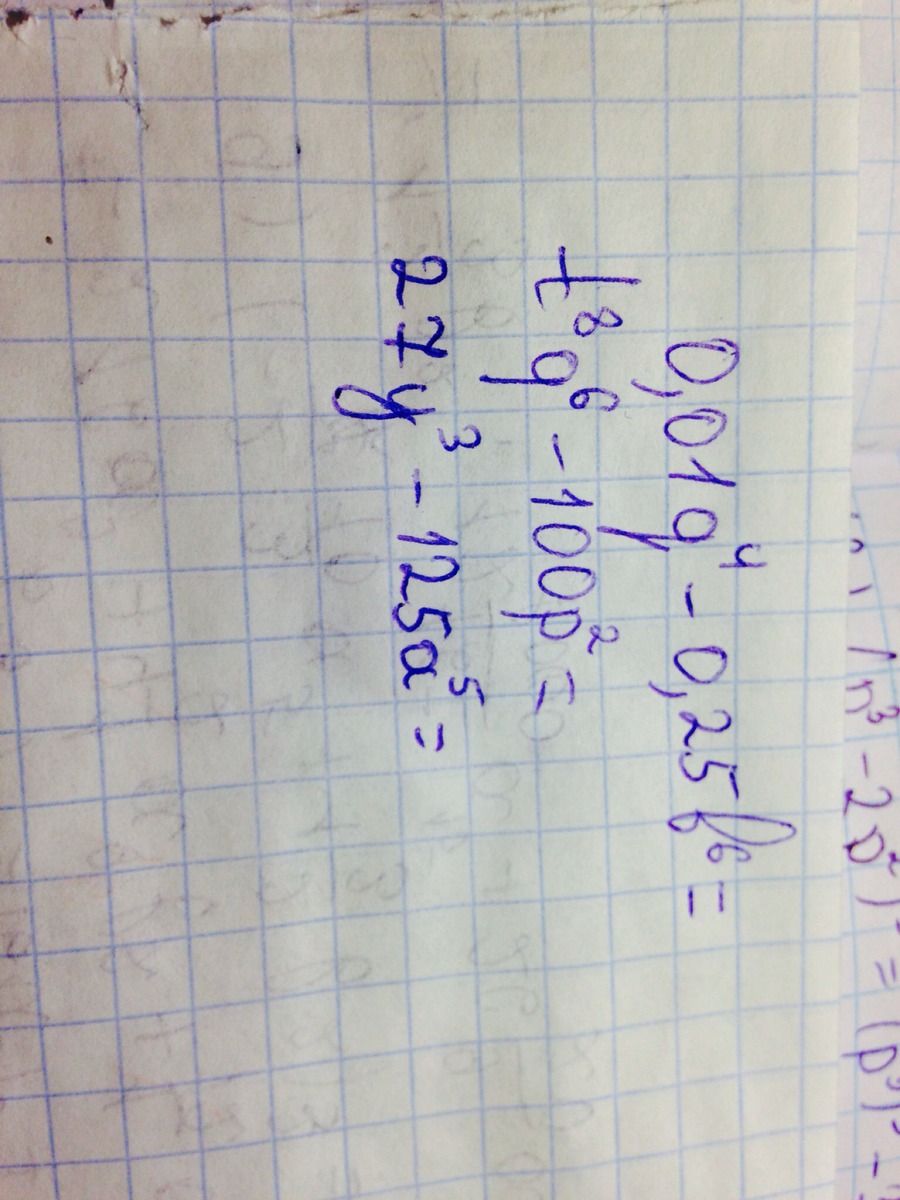 0,01q⁴ - 0,25b⁶ =
t⁸q⁶ - 100p² =
27y³ - 125a⁵ =
n³ - 2p²) = (p³)³ -